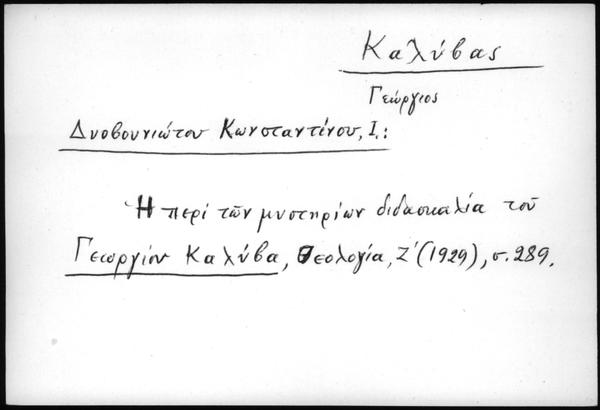 Καλύβας
Γεώργιος
Δυοβουνιώτου Κωνσταντίνου, Ι.:
Ἡ περί τῶν μυστηρίων διδασκαλία τοῦ
Γεωργίου Καλύβα, Θεολογία, Ζ' (1929), σ. 289.